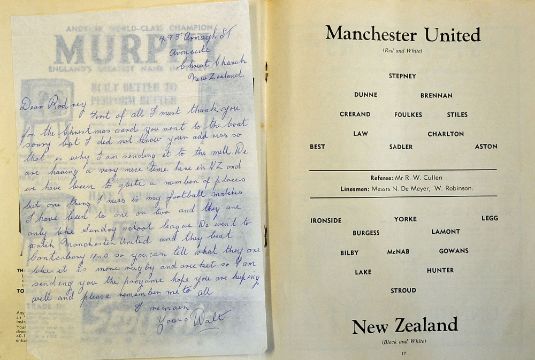 ANDY
WORLD-CLASS CHAMPION
MURP
ENGLAND'S GREATEST NAME
BUILT BETTER TO
PERFORM BETTER
St
Avonside
Christ Church
New Zealand
Dear Rodney
First of all I must thank you
for the Christmas card you sent to the boat
sorry but I did not know your address so
that is why I am sending it to the mill We
are having a very nice time here in NZ and
we have been to quite a number of places
but one thing I miss is my football matches
I have been to one or two and they are
only like Sunday school league We went to
watch Manchester United and they beat
Canterbury so you can tell what they are
like it is more rugby and cricket so I am
sending you the programe hope you are keeping
well and please remember me to all
I remain
Yours Walt
TRADE-IN
Manchester United
(Red and White)
STEPNEY
DUNNE BRENNAN
CRERAND FOULKES STILES
LAW CHARLTON
BEST SADLER ASTON
Referee: Mr R. W. Cullen
Linesmen: Messrs N. De Meyer, W. Robinson.
IRONSIDE YORKE LEGG
BURGESS LAMONT
BILBY McNAB GOWANS
LAKE HUNTER
STROUD
New Zealand
(Black and White)
17